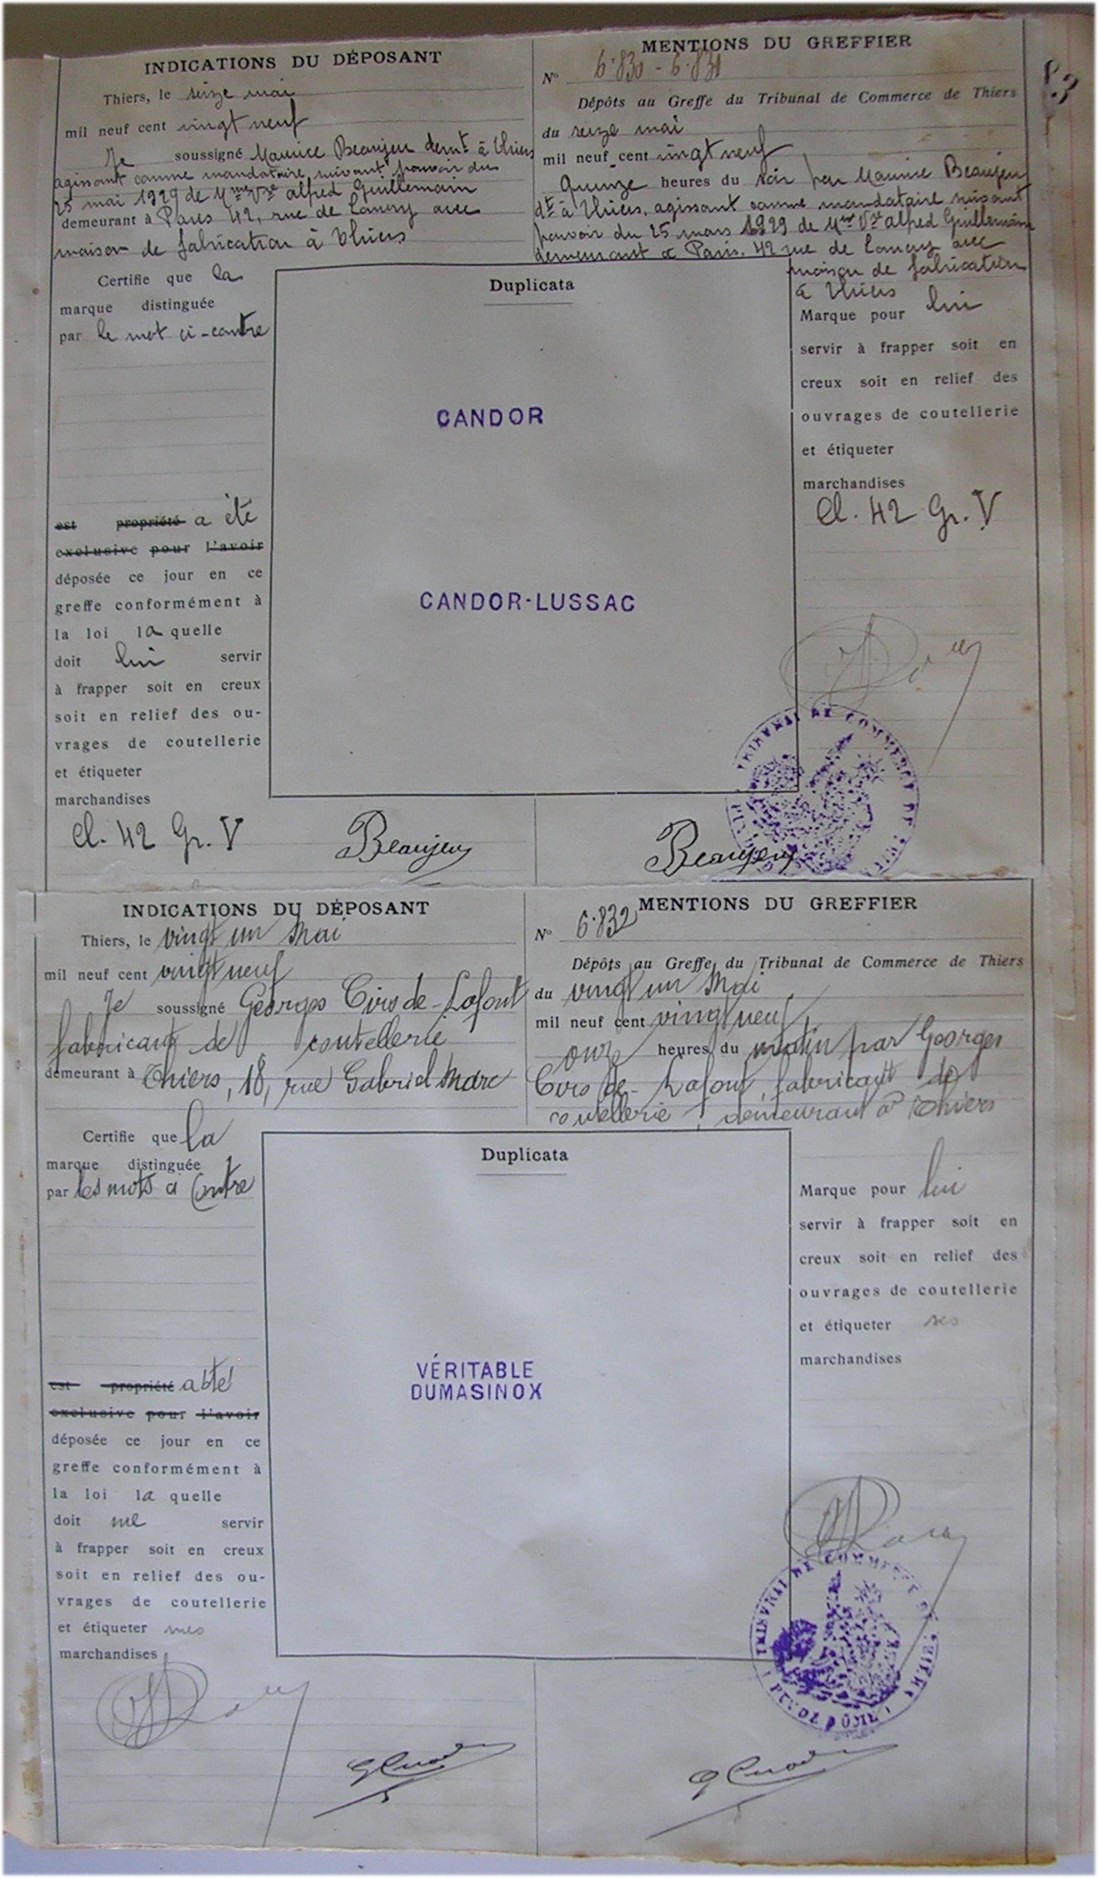 INDICATIONS DU DÉPOSANT
Thiers, le seize mai
mil neuf cent vingt neuf
Je soussigné Maurice Beaujeu demt à Thiers
agissant comme mandataire suivant pouvoir du
25 mai 1929 de Mme Vve alfred Guillemain
demeurant à Paris 42, rue de Lancry avec
maison de fabrication à Thiers
Certifie que la
marque distinguée
par le mot ci-contre
est propriété a été
exclusive pour l'avoir
déposée ce jour en ce
greffe conformément à
la loi laquelle
doit lui servir
à frapper soit en creux
soit en relief des ou-
vrages de coutellerie
et étiqueter
marchandises
Cl. 42 Gr. V
Duplicata
CANDOR
CANDOR-LUSSAC
Beaujeu
MENTIONS DU GREFFIER
No 6.830 - 6.831
83
Dépôts au Greffe du Tribunal de Commerce de Thiers
du seize mai
mil neuf cent vingt neuf
Quinze heures du soir par Maurice Beaujeu
dt à Thiers, agissant comme mandataire suivant
pouvoir du 25 mars 1929 de Mme Vve alfred Guillemain
demeurant à Paris. 42 rue de Lancry avec
maison de fabrication
à Thiers
Marque pour lui
servir à frapper soit en
creux soit en relief des
ouvrages de coutellerie
et étiqueter
marchandises
Cl. 42 Gr. V
TRIBUNAL DE COMMERCE DE
Beaujeu
INDICATIONS DU DÉPOSANT
Thiers, le vingt un Mai
mil neuf cent vingt neuf
Je soussigné Georges Cirode-Lafont
fabricant de coutellerie
demeurant à Thiers, 18, rue Gabriel Marc
Certifie que la
marque distinguée
par les mots ci Contre
est propriété a été
exclusive pour l'avoir
déposée ce jour en ce
greffe conformément à
la loi laquelle
doit me servir
à frapper soit en creux
soit en relief des ou-
vrages de coutellerie
et étiqueter mes
marchandises
Duplicata
VÉRITABLE
DUMASINOX
MENTIONS DU GREFFIER
No 6.832
Dépôts au Greffe du Tribunal de Commerce de Thiers
du vingt un Mai
mil neuf cent vingt neuf
onze heures du matin par Georges
Cirode-Lafont, fabricant de
coutellerie, demeurant à Thiers
Marque pour lui
servir à frapper soit en
creux soit en relief des
ouvrages de coutellerie
et étiqueter ses
marchandises
TRIBUNAL DE COMMERCE DE THIERS